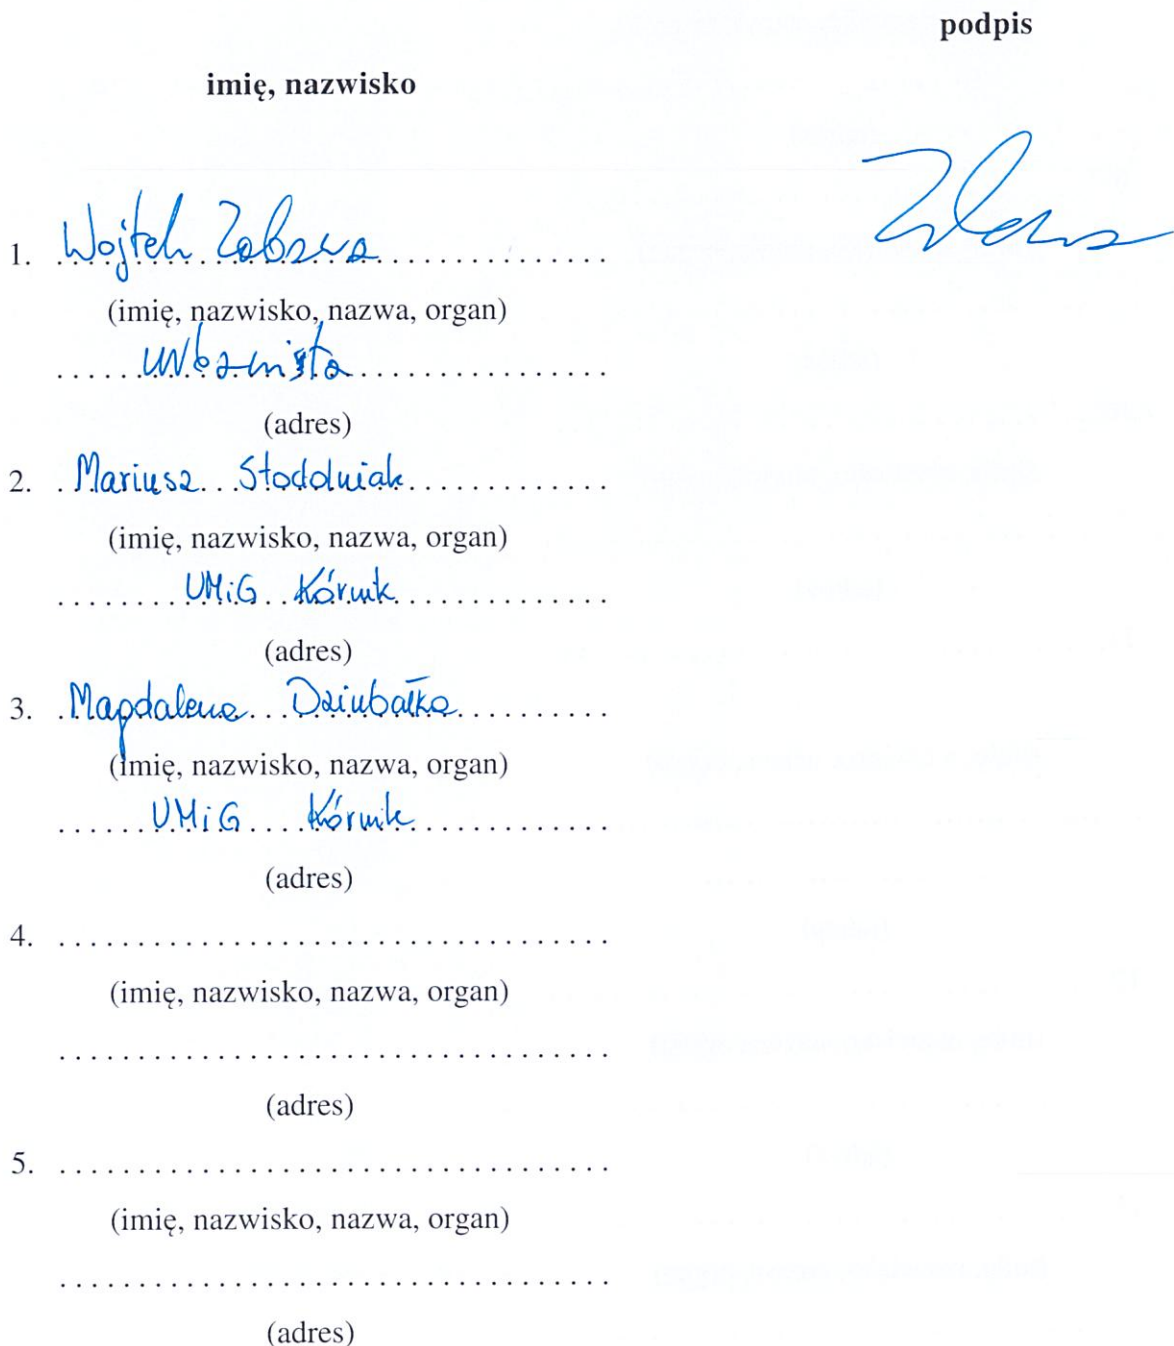 podpis
imię, nazwisko
1. Wojtek
(imię, nazwisko, nazwa, organ)
(adres)
2. Mariusz Stodolniak
(imię, nazwisko, nazwa, organ)
UMiG Kórnik
(adres)
3. Magdalena Dziubałka
(imię, nazwisko, nazwa, organ)
UMiG Kórnik
(adres)
4.
(imię, nazwisko, nazwa, organ)
(adres)
5.
(imię, nazwisko, nazwa, organ)
(adres)